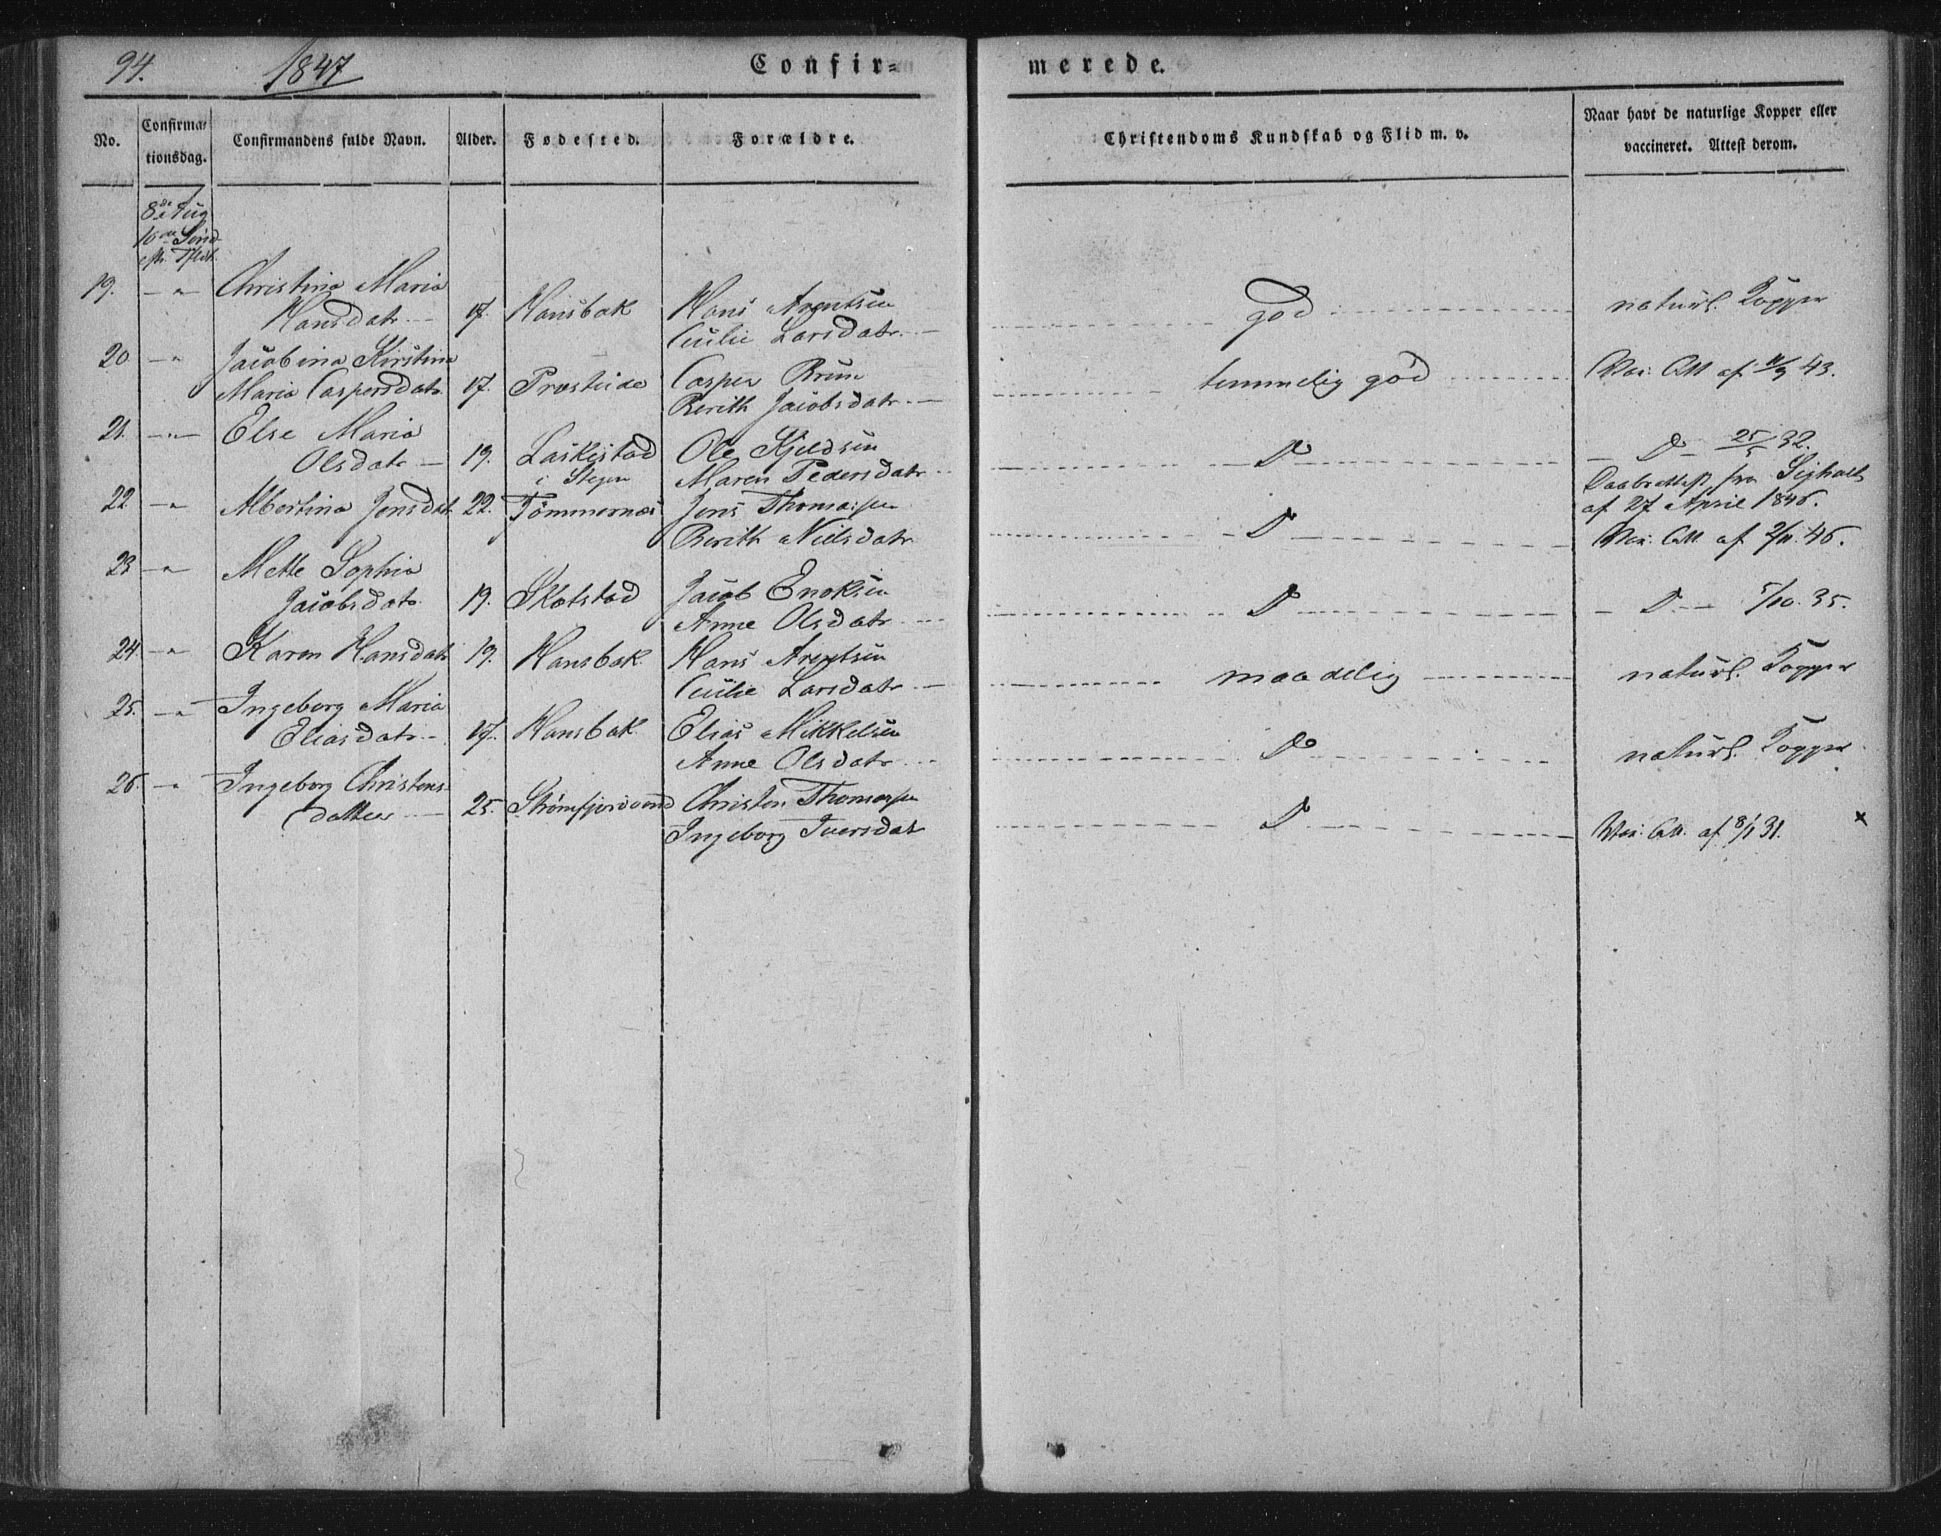 94. 1847 Confir=merede.
No. Confirmationsdag. Confirmandens fulde Navn. Alder. Fødested. Forældre. Christendoms Kundskab og Flid m. v. Naar havt de naturlige Kopper eller vaccineret. Attest derom.
8de Aug
10de Sönd
eft. Tflst.
19. -"- Christina Maria
Hansdatr 17. Hansbak Hans Arentsen god naturl. Kopper
Cecilie Larsdatr.
20 -"- Jacobina Kirstina
Maria Caspersdatr 17. Præsteide Casper Brun temmelig god Vac. Att af 11/9 43.
Berith Jacobsdatr.
21. -"- Else Maria
Olsdatr 19. Laskestad Ole Kjeldsen D D 25/5 32.
i Stegen Maren Pedersdatr
22 -"- Albertina Jensdatr 22. Tømmernæs Jens Thomassen D Daabsattest fra
af 27 April 1846.
Berith Nielsdatr Vac. Att af 2/11. 46.
23 -"- Mette Sophia
Jacobsdatr 19. Skotstad Jacob Enoksen D D 5/10. 35.
Anne Olsdatr
24. -"- Karen Hansdatr 19. Hansbak Hans Arentsen maadelig naturl. Kopper
Cecilie Larsdatr
25. -"- Ingeborg Maria
Eliasdatr 17. Hansbak Elias Mikkelsen Do naturl. Kopper
Anne Olsdatr
26. -"- Ingeborg Christens
datter 25. Strømfjordvand Christen Thomassen D Vac. Att. af 8/1 31. x
Ingeborg Iversdat